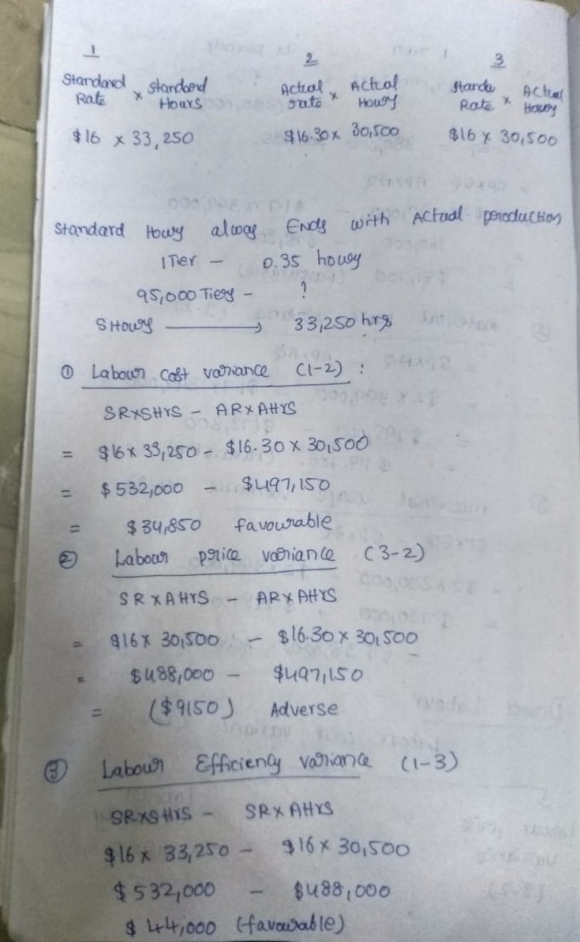 1 2 3
Standard Rate x Standard Hours Actual rate x Actual Hours Standa Rate x Actual Hours
$16 x 33,250 $16.30 x 30,500 $16 x 30,500
Standard Hours always Ends with Actual production
1 Tier - 0.35 hours
95,000 Tiers - ?
S Hours → 33,250 hrs
① Labour cost variance (1-2) :
SR x SHrs - AR x AHrs
= $16 x 33,250 - $16.30 x 30,500
= $532,000 - $497,150
= $34,850 favourable
② Labour price variance (3-2)
SR x AHrs - AR x AHrs
= $16 x 30,500 - $16.30 x 30,500
= $488,000 - $497,150
= ($9150) Adverse
③ Labour Efficiency variance (1-3)
SR x S Hrs - SR x AHrs
$16 x 33,250 - $16 x 30,500
$532,000 - $488,000
$44,000 (favourable)